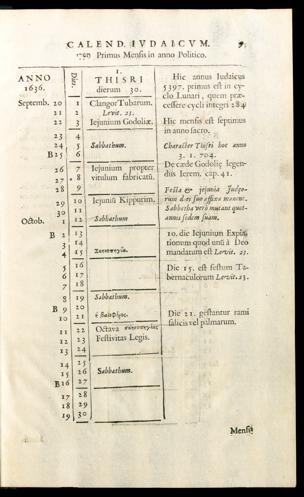 CALEND. IVDAICVM. 5.
Primus Mensis in anno Politico.
ANNO
1636.
Dies.
I.
THISRI
dierum 30.
Hic annus Iudaicus
5397. primus est in cy-
clo Lunari, quem præ-
cessere cycli integri 284
Septemb. 20 1 Clangor Tubarum.
21 2 Levit. 23.
22 3 Ieiunium Godoliæ.
Hic mensis est septimus
in anno sacro.
23 4
24 5 Sabbathum.
B 25 6
Character Tisri hoc anno
3. 1. 704.
26 7 Ieiunium propter
27 8 vitulum fabricatũ.
28 9
De cæde Godolię legen-
dus Ierem. cap. 41.
29 10 Ieiuniũ Kippurim.
30 11
Octob. 1 12 Sabbathum
Festa & jejunia Iudæo-
rum dies suos affixa manent.
Sabbatha verò mutant quot-
annis sedem suam.
B 2 13
3 14
4 15 Σκηνοπηγία.
10. die Ieiunium Expia-
tionum quod unũ à Deo
mandatum est Levit. 23.
5 16
6 17
7 18
Die 15. est festum Ta-
bernaculorum Levit. 23.
8 19 Sabbathum.
B 9 20
10 21 ἡ βαϊοφόρος.
Die 21. gestantur rami
salicis vel palmarum.
11 22 Octava σκηνοπηγίας
12 23 Festivitas Legis.
13 24
14 25
15 26 Sabbathum.
B 16 27
17 28
18 29
19 30
Mensis